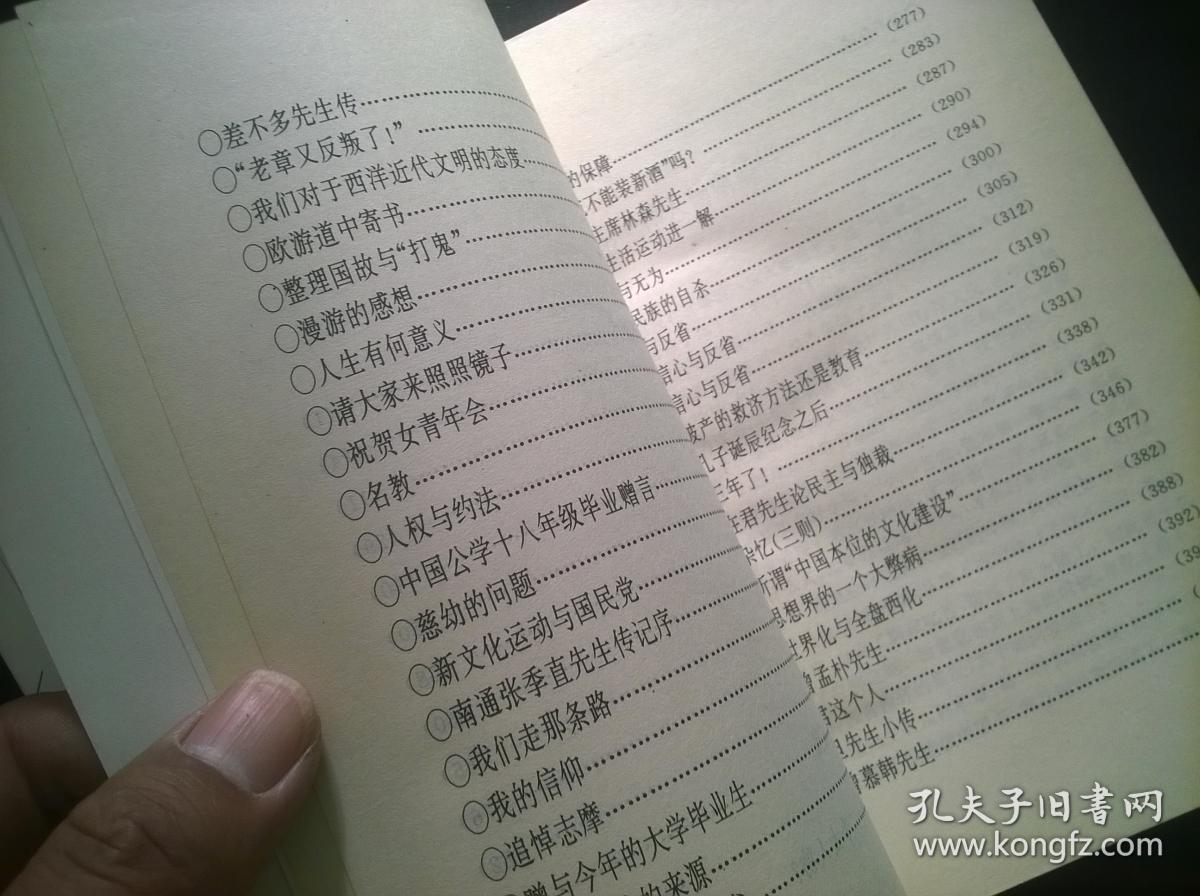 ○差不多先生传
○“老章又反叛了!”
○我们对于西洋近代文明的态度
○欧游道中寄书
○整理国故与“打鬼”
○漫游的感想
○人生有何意义
○请大家来照照镜子
○祝贺女青年会
○名教
○人权与约法
○中国公学十八年级毕业赠言
○慈幼的问题
○新文化运动与国民党
○南通张季直先生传记序
○我们走那条路
○我的信仰
○追悼志摩
赠与今年的大学毕业生
的来源
的保障 (277)
不能装新酒”吗? (283)
主席林森先生 (287)
生活运动进一解 (290)
与无为 (294)
民族的自杀 (300)
与反省 (305)
信心与反省 (312)
信心与反省 (319)
破产的救济方法还是教育 (326)
孔子诞辰纪念之后 (331)
三年了! (338)
在君先生论民主与独裁 (342)
杂忆(三则) (346)
所谓“中国本位的文化建设” (377)
思想界的一个大弊病 (382)
世界化与全盘西化 (388)
曾孟朴先生 (392)
君这个人 (39
先生小传
曾慕韩先生
孔夫子旧书网
www.kongfz.com